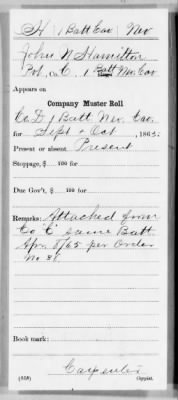 H | 1 Batt Cav | Nev
John N Hamilton
Pvt, Co. C, 1 Batt Nev. Cav
Appears on
Company Muster Roll
Co. D 1 Batt Nev. Cav.
for Sept & Oct, 1865.
Present or absent Present
Stoppage, $ 100 for
Due Gov't, $ 100 for
Remarks: Attached from
Co "C" same Batt
Apr. 8/65 per Order
No 8
Book mark:
Carpenter
(858) Copyist.